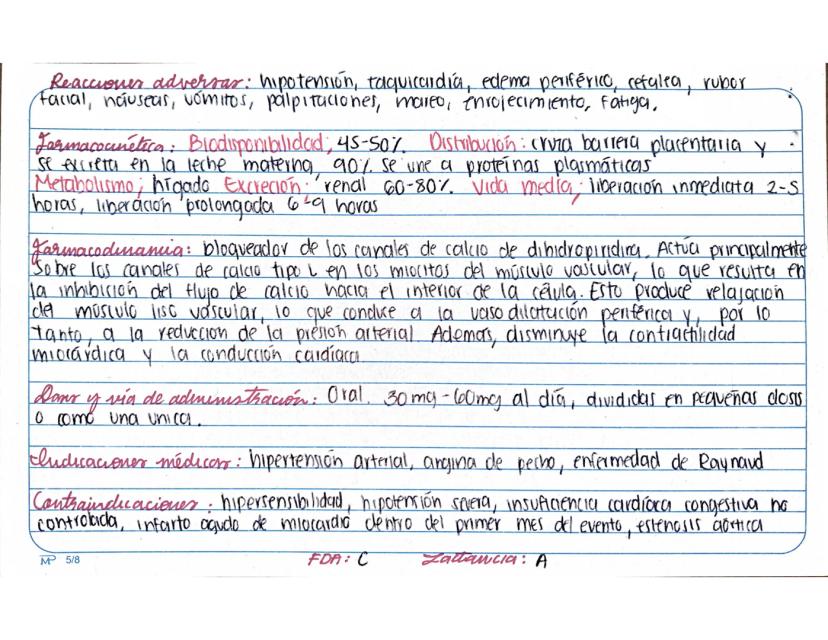 Reacciones adversas: hipotensión, taquicardia, edema periférico, cefalea, rubor
facial, náuseas, vómitos, palpitaciones, mareo, enrojecimiento, fatiga.
Farmacocinética: Biodisponibilidad; 45-50%. Distribución: cruza barrera placentaria y
se excreta en la leche materna, 90% se une a proteínas plasmáticas
Metabolismo; hígado Excreción: renal 60-80%. Vida media; liberación inmediata 2-5
horas, liberación prolongada 6-9 horas
Farmacodinamia: bloqueador de los canales de calcio de dihidropiridina. Actúa principalmente
sobre los canales de calcio tipo L en los miocitos del músculo vascular, lo que resulta en
la inhibición del flujo de calcio hacia el interior de la célula. Esto produce relajación
del músculo liso vascular, lo que conduce a la vasodilatación periférica y, por lo
tanto, a la reducción de la presión arterial. Además, disminuye la contractilidad
miocárdica y la conducción cardíaca
Dosis y vía de administración: Oral. 30mg-60mg al día, divididas en pequeñas dosis
o como una unica.
Indicaciones médicas: hipertensión arterial, angina de pecho, enfermedad de Raynaud
Contraindicaciones: hipersensibilidad, hipotensión severa, insuficiencia cardíaca congestiva no
controlada, infarto agudo de miocardio dentro del primer mes del evento, estenosis aórtica
MP 5/8 FDA: C Lactancia: A